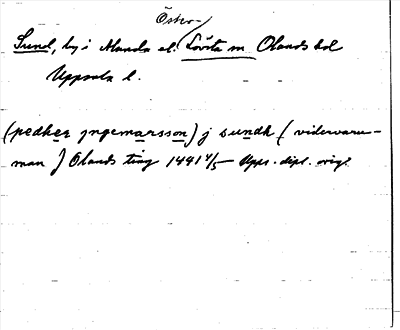 Öster-
Sund, by i Alunda el. Lövsta sn. Olands hd
Uppsala l.
(pedher yngemarsson) j sundh (vidervaru-
man) Olands ting 1441 4/5 Upps. dipl. orig.